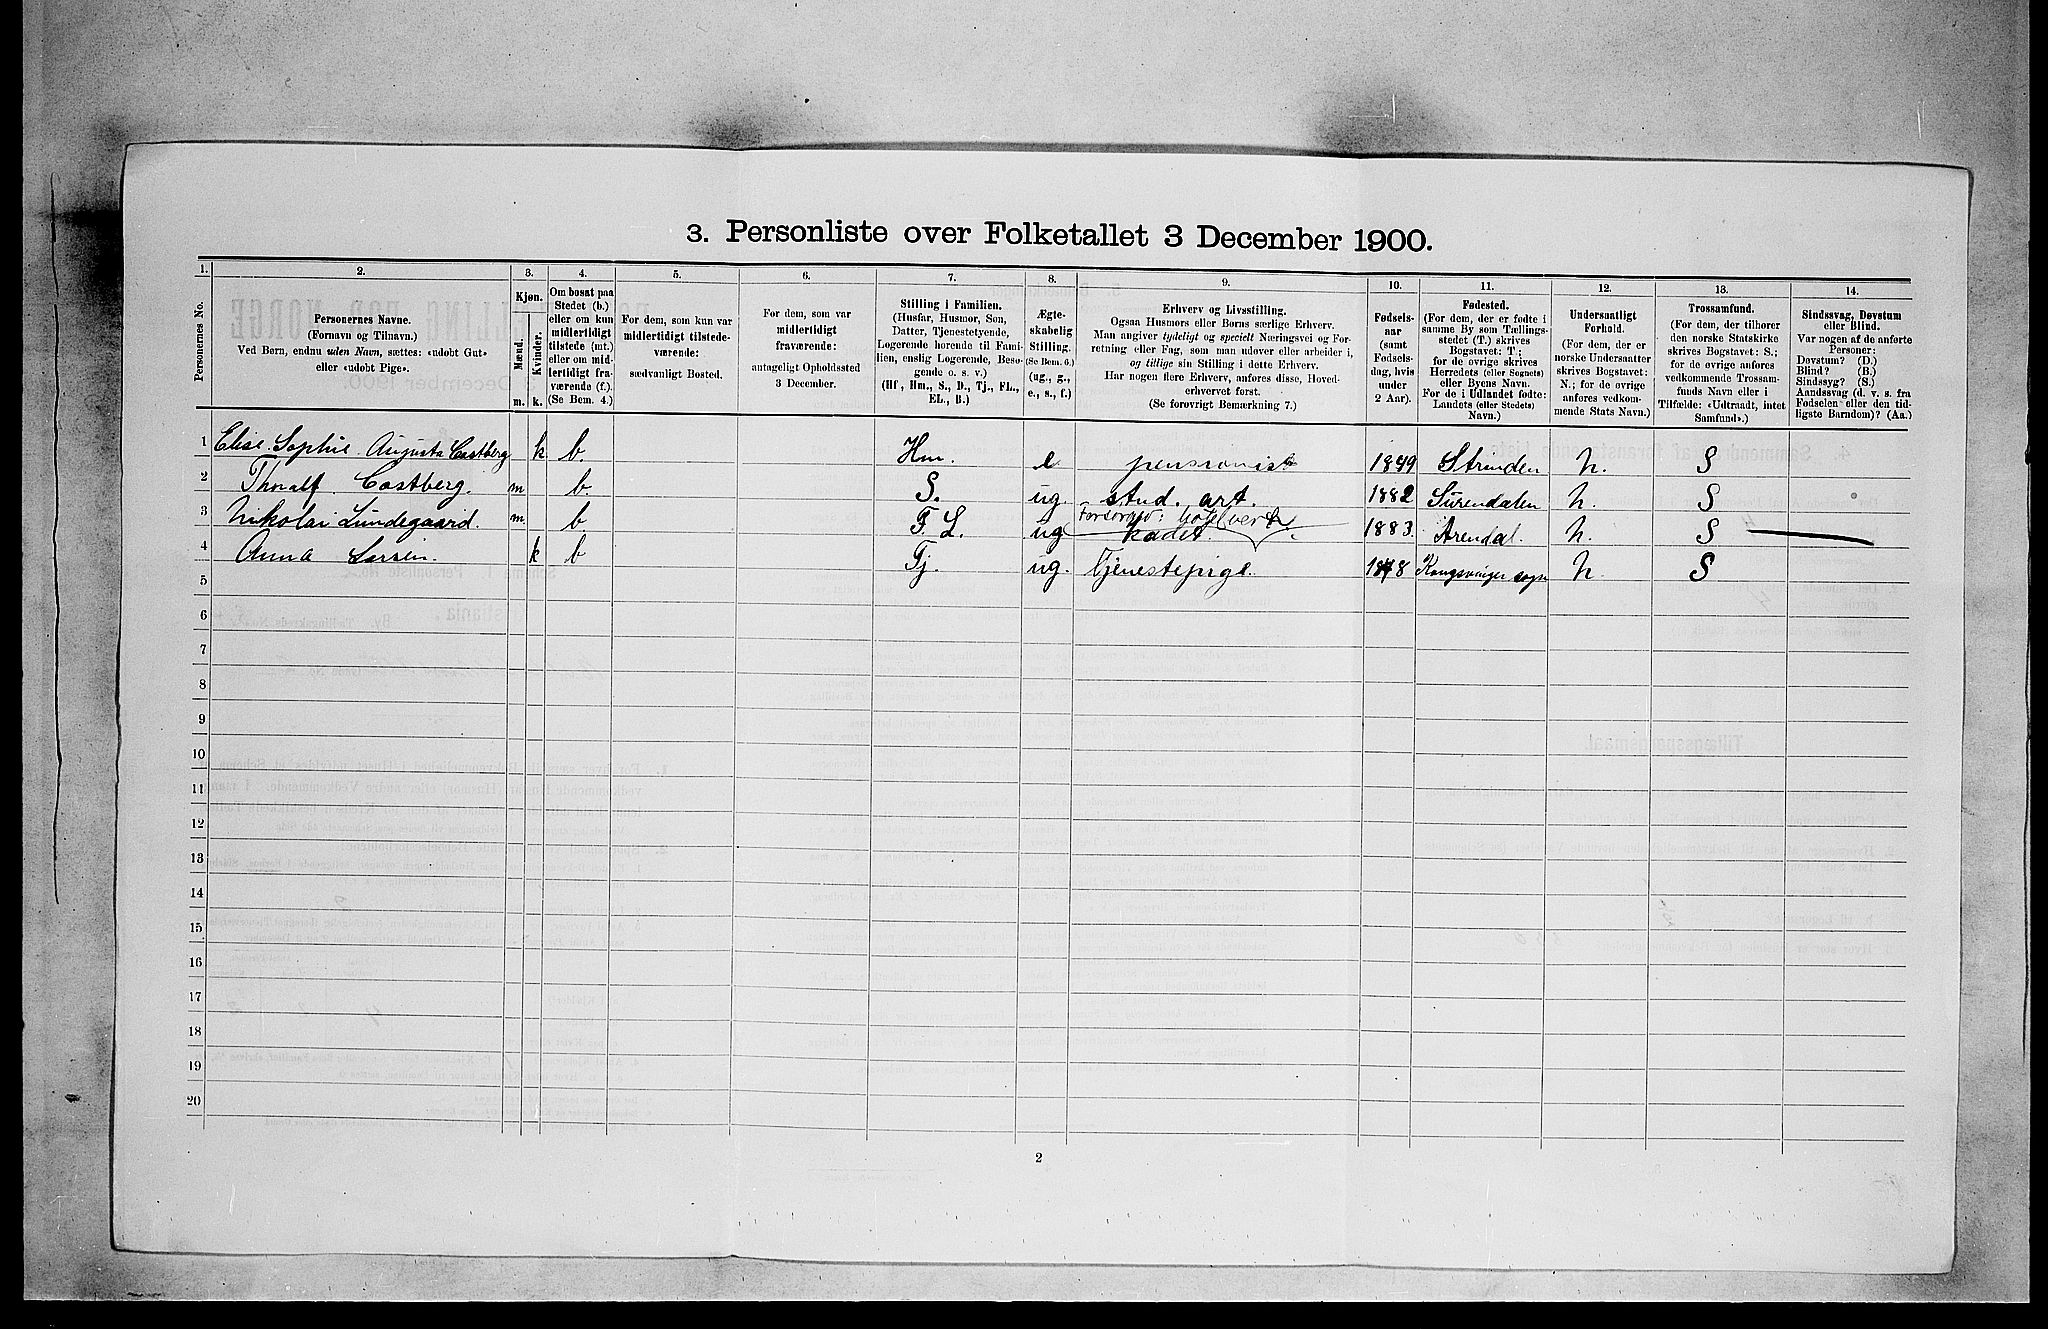 3. Personliste over Folketallet 3 December 1900.
1. 2. 3. 4. 5. 6. 7. 8. 9. 10. 11. 12. 13. 14.
Personernes No.
Personernes Navne.
(Fornavn og Tilnavn.)
Ved Børn, endnu uden Navn, sættes: «udøbt Gut»
eller «udøbt Pige».
Kjøn.
Mænd.
Kvinder.
m. k.
Om bosat paa
Stedet (b.)
eller om kun
midlertidigt
tilstede (mt.)
eller om mid-
lertidigt fra-
værende (f.).
(Se Bem. 4.)
For dem, som kun var
midlertidigt tilstede-
værende:
sædvanligt Bosted.
For dem, som var
midlertidigt
fraværende:
antageligt Opholdssted
3 December.
Stilling i Familien.
(Husfar, Husmor, Søn,
Datter, Tjenestetyende,
Logerende hørende til Fami-
lien, enslig Logerende, Besø-
gende o. s. v.)
(Hf, Hm., S., D., Tj., FL.,
EL., B.)
Ægte-
skabelig
Stilling.
(Se Bem. 6.)
(ug., g.,
e., s., f.)
Erhverv og Livsstilling.
Ogsaa Husmors eller Børns særlige Erhverv.
Man angiver tydeligt og specielt Næringsvei og For-
retning eller Fag, som man udøver eller arbeider i,
og tillige sin Stilling i dette Erhverv.
Har nogen flere Erhverv, anføres disse, Hoved-
erhvervet først.
(Se forøvrigt Bemærkning 7.)
Fødsels-
aar
(samt
Fødsels-
dag, hvis
under
2 Aar).
Fødested.
(For dem, der er fødte i
samme By som Tællings-
stedet (T.) skrives
Bogstavet: T.;
for de øvrige skrives
Herredets (eller Sognets)
eller Byens Navn.
For de i Udlandet fødte:
Landets (eller Stedets)
Navn.)
Undersaatligt
Forhold.
(For dem, der er
norske Undersaatter
skrives Bogstavet:
N.; for de øvrige
anføres vedkom-
mende Stats Navn.)
Trossamfund.
(For dem, der tilhører
den norske Statskirke
skrives Bogstavet: S.;
for de øvrige anføres
vedkommende Trossam-
funds Navn eller i
Tilfælde: «Udtraadt, intet
Samfund».)
Sindssvag, Døvstum
eller Blind.
Var nogen af de anførte
Personer:
Døvstum? (D.)
Blind? (B.)
Sindssyg? (S.)
Aandssvag (d. v. s. fra
Fødselen eller den tid-
ligste Barndom)? (Aa.)
1 Elise Sophie Augusta Castberg k b. Hm. e pensionist 1849 Strinden N. S
2 Thoralf Castberg. m b. S. ug. stud. art. 1882 Surendalen N. S
3 Nikolai Lundegaard. m b F L. ug kadet. Forsørged: Hotelvert 1883. Arendal. N. S
4 Anna Larsen. k b Tj. ug. Tjenestepige. 1878 Kongsvinger sogn N. S
5
6
7
8
9
10
11
12
13
14
15
16
17
18
19
20
2